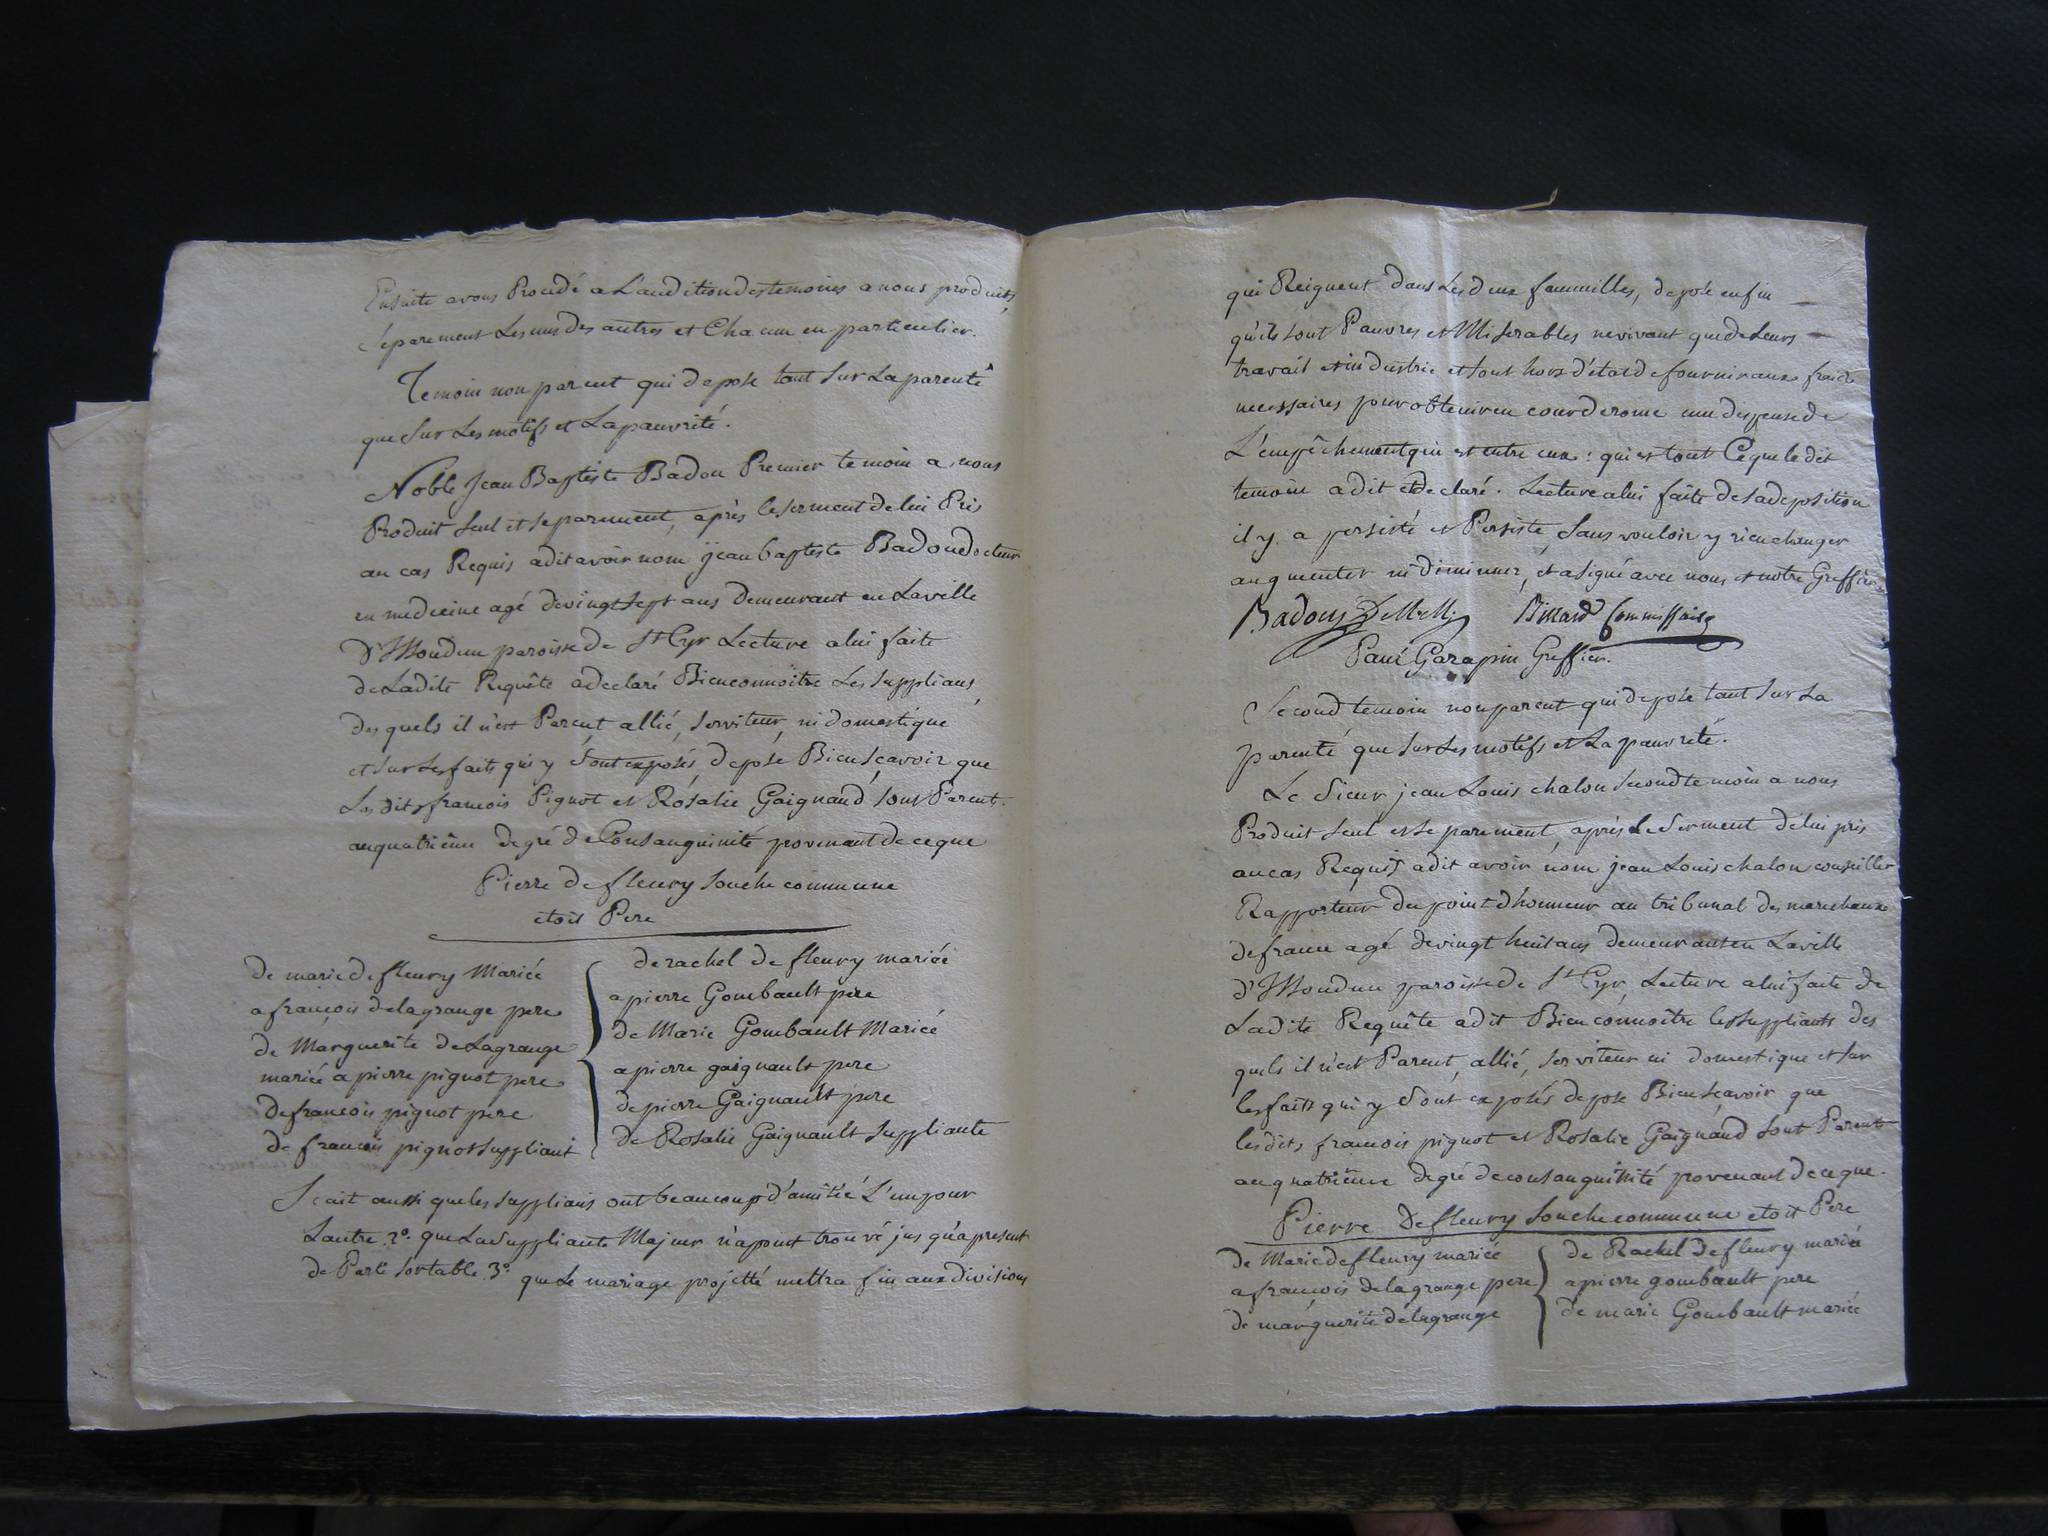 Ensuite avons Procedé a L'audition des temoins a nous produits
séparement Les uns des autres et Chacun en particulier.
Temoin non parent qui depose tant sur La parenté
que sur Les motifs et La pauvrité.
Noble Jean Baptiste Badou Premier temoin a nous
Produit seul et separement, après le serment de lui Pris
au cas Requis a dit avoir nom jean baptiste Badou docteur
en medecine agé de vingt sept ans demeurant en La ville
D'Issoudun paroisse de St Cyr Lecture a lui faite
de Ladite Requête a declaré Bien connoitre Les supplians
des quels il n'est Parent allié, serviteur, ni domestique
et sur Les faits qui y sont exposés, depose Bien sçavoir que
Les dits francois Pignot et Rosalie Gaignaud sont Parent
au quatriême degré de Consanguinité provenant de ce que
Pierre de fleury souche commune
etoit Pere
de marie de fleury Mariée
a françois de lagrange pere
de Marguerite de Lagrange
mariée a pierre pignot pere
de francois pignot pere
de francois pignot suppliant
de rachel de fleury mariée
a pierre Gombault pere
de Marie Gombault Mariée
a pierre gaignault pere
de pierre Gaignault pere
de Rosalie Gaignault suppliante
Scait aussi que les supplians ont beaucoup d'amitié L'un pour
Lautre 2º. que La Suppliante Majeur n'a point trouvé jus qu'a present
de Parti sortable 3º que Le mariage projetté mettra fin aux divisions
qui Reignent dans Les deux fammilles, depose enfin
qu'ils sont Pauvres et Miserables ne vivant que de Leurs
travail et industrie et sont hors d'état de fournir aux frais
necessaires pour obtenir en cour de rome une dispense de
L'empêchement qui est entre eux : qui est tout Ce que le dit
temoin a dit et declaré. Lecture a lui faite de sa deposition
il y a persisté et Persiste sans vouloir y rien changer
augmenter ni diminuer, et a signé avec nous et notre Greffier
Badou Commissaire
Garapin Greffier.
Second temoin non parent qui depose tant sur La
parenté que sur Les motifs et La pauvreté.
Le Sieur jean Louis chalon second temoin a nous
Produit seul et separement, après Le Serment de lui pris
au cas Requis a dit avoir nom jean Louis chalon conseiller
Rapporteur du point d'honneur au tribunal des marechaux
de france agé de vingt huit ans demeurant en La ville
d'Issoudun paroisse de St Cyr, Lecture a lui faite de
Ladite Requête a dit Bien connoitre les suppliants des
quels il n'est Parent, allié, serviteur ni domestique et sur
les faits qui y sont exposés depose Bien scavoir que
les dits francois pignot et Rosalie Gaignaud sont Parent
au quatriême degré de consanguinité provenant de ce que
Pierre de fleury souche commune etoit Pere
de Marie de fleury mariée
a francois de lagrange pere
de marguerite de lagrange
de Rachel de fleury mariée
a pierre gombault pere
de marie Gombault mariée